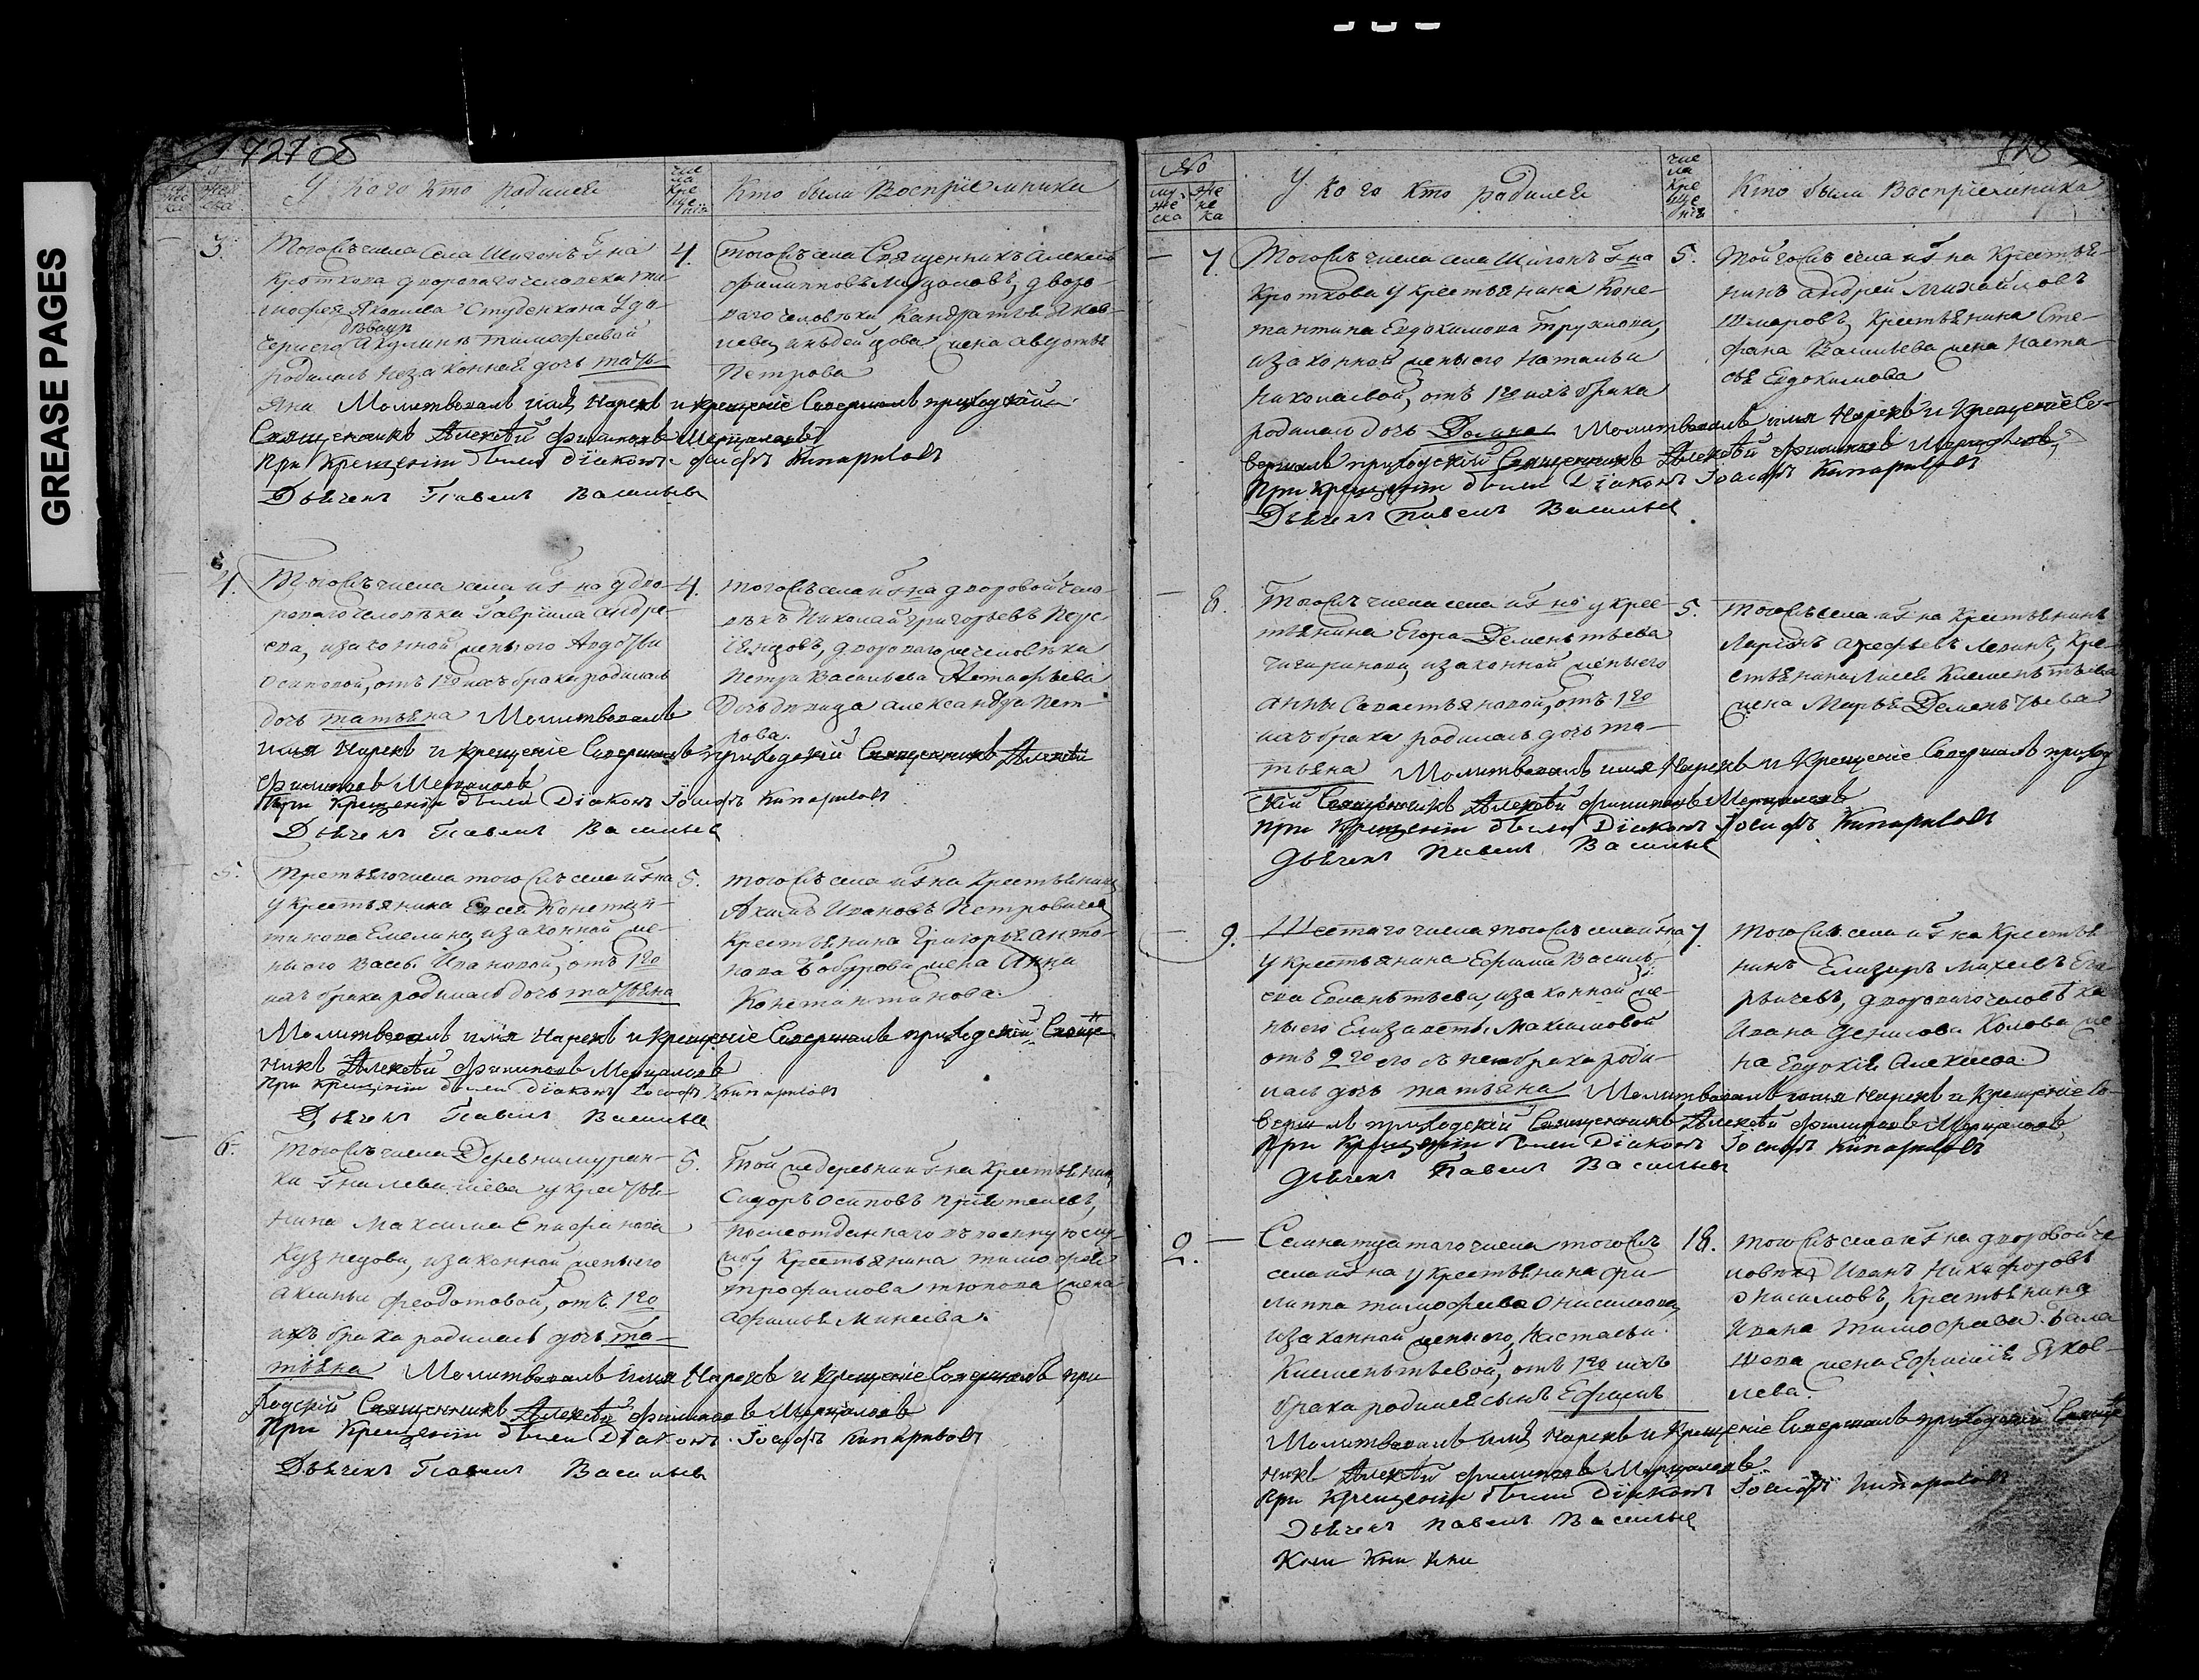 GREASE PAGES
727 об
У кого кто родился
числа крещенія
Кто были Воспріемники
3.
Тогожъ числа села Шигонъ Г на
Кроткова двороваго человека Ти-
мофея Яковлева Студенкина у до-
девицы
чери его Акулины Тимофеевой
родилась незаконная дочь Тать-
яна Молитвовалъ имя Нарекъ и крещеніе Совершалъ приходскій
Священникъ Алексѣй Филиповъ Мерцаловъ
При Крещеніи были Діаконъ Іосифъ Кипарисовъ
Дьячекъ Павелъ Васильевъ
4.
тогожъ села Священникъ Алексѣй
Филипповъ Мерцаловъ, дворо-
ваго человѣка Кандратья Яков-
лева жена Авдотья
Петрова
4.
Тогожъ числа села и Г на у дво-
роваго человѣка Гавріила Андре-
ева, и законной жены его Авдотьи
Осиповой, отъ 1го ихъ брака родилась
дочь Татьяна Молитвовалъ
имя Нарекъ и крещеніе Совершалъ приходскій Священникъ Алексѣй
Филиповъ Мерцаловъ
При Крещеніи были Діаконъ Іосифъ Кипарисовъ
Дьячекъ Павелъ Васильевъ
4.
тогожъ села и Г на дворовой чело-
вѣкъ Николай Григорьевъ
двороваго человѣка
Петра Васильева
Дочь девица Александра Пет-
рова.
5.
Третьяго числа тогожъ села и Г на
у крестьянина Евсея Констан-
тинова Емелина, и законной же-
ны его Васы Ивановой, отъ 1го
ихъ брака родилась дочь Татьяна
Молитвовалъ имя Нарекъ и крещеніе Совершалъ приходскій Свяще
никъ Алексѣй Филиповъ Мерцаловъ
При крещеніи были Діаконъ Іосифъ Кипарисовъ
Дьячекъ Павелъ Васильевъ
5.
тогожъ села и Г на Крестьянинъ
Акимъ Ивановъ Петровичевъ
Крестьянина Григорья Анто-
нова Бобурова жена Анна
Константинова.
6.
Тогожъ числа Деревни Муран-
ки Г на Левашева у кресть-
нина Максима Епифанова
Кузнецова, и законной жены его
Аксиньи Феодотовой, отъ 1го
ихъ брака родилась дочь Та-
тьяна Молитвовалъ имя Нарекъ и Крещеніе Совершалъ при
ходскій Священникъ Алексѣй Филиповъ Мерцаловъ
При Крещеніи были Діаконъ Іосифъ Кипарисовъ
Дьячекъ Павелъ Васильевъ
5.
Той же деревни и Г на Крестьянинъ
Сидоръ Осиповъ Пріятелевъ,
после отданнаго въ военную слу-
жбу Крестьянина Тимофея
Трофимова жена
Афимья Минеева.
мужеска
женска
У кого кто родился
числа крещенія
Кто были Воспріемники
7.
Тогожъ числа села Шигонъ Г на
Кроткова у крестьянина Конс-
тантина Евдокимова Трухлова,
и законной жены его Натальи
Николаевой, отъ 1го ихъ брака
родилась дочь Домна Молитвовалъ имя Нарекъ и Крещеніе Со-
вершалъ приходскій Священникъ Алексѣй Филиповъ Мерцаловъ,
При Крещеніи были Діаконъ Іосифъ Кипарисовъ
Дьячекъ Павелъ Васильевъ
5.
Тогожъ села и Г на Крестья-
нинъ Андрей Михайловъ
Шмаровъ, Крестьянина Сте-
фана Васильева жена Наста-
сья Евдокимова
8.
Тогожъ числа села и Г на у крес-
тьянина Егора Дементьева
Чигиринова, и законной жены его
Анны Савастьяновой, отъ 1го
ихъ брака родилась дочь Та-
тьяна Молитвовалъ имя Нарекъ и Крещеніе Совершалъ приход
скій Священникъ Алексѣй Филиповъ Мерцаловъ
При Крещеніи были Діаконъ Іосифъ Кипарисовъ
Дьячекъ Павелъ Васильевъ
5.
Тогожъ села и Г на Крестьянинъ
Ларіонъ Арефьевъ Левинъ, Кре-
стьянина Клементьева
жена Марья Дементьева
9.
Шестаго числа тогожъ села и Г на
у крестьянина Ефима Василь-
ева и законной же-
ны его Елизаветы Максимовой
отъ 2го его съ нею брака роди-
лась дочь Татьяна Молитвовалъ имя Нарекъ и Крещеніе Со-
вершалъ приходскій Священникъ Алексѣй Филиповъ Мерцаловъ,
При Крещеніи были Діаконъ Іосифъ Кипарисовъ
Дьячекъ Павелъ Васильевъ
7.
Тогожъ села и Г на Крестья-
нинъ Елизаръ Михеевъ
двороваго человѣка
Ивана Денисова Колова же-
на Евдокія Алексеева.
2.
Семнатцатаго числа тогожъ
села и Г на у крестьянина Фи-
липпа Тимофеева Онисимова,
и законной жены его, Настасьи
Клементьевой, отъ 1го ихъ
брака родился сынъ Ефремъ
Молитвовалъ имя Нарекъ и Крещеніе Совершалъ приходскій Свяще
никъ Алексѣй Филиповъ Мерцаловъ
При Крещеніи были Діаконъ Іосифъ Кипарисовъ
Дьячекъ Павелъ Васильевъ
18.
Тогожъ села и Г на дворовой че
ловѣкъ Иванъ Никифоровъ
Онисимовъ, Крестьянина
Ивана Тимофеева Бала
шова жена Ефимія Яков-
лева.